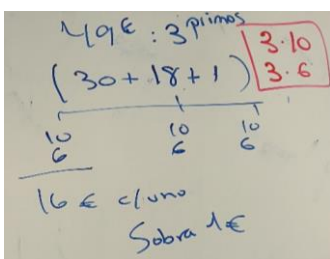 49€ : 3 primos
3·10
3·6
(30+18+1)
10 10 10
6 6 6
16 € c/uno
Sobra 1€